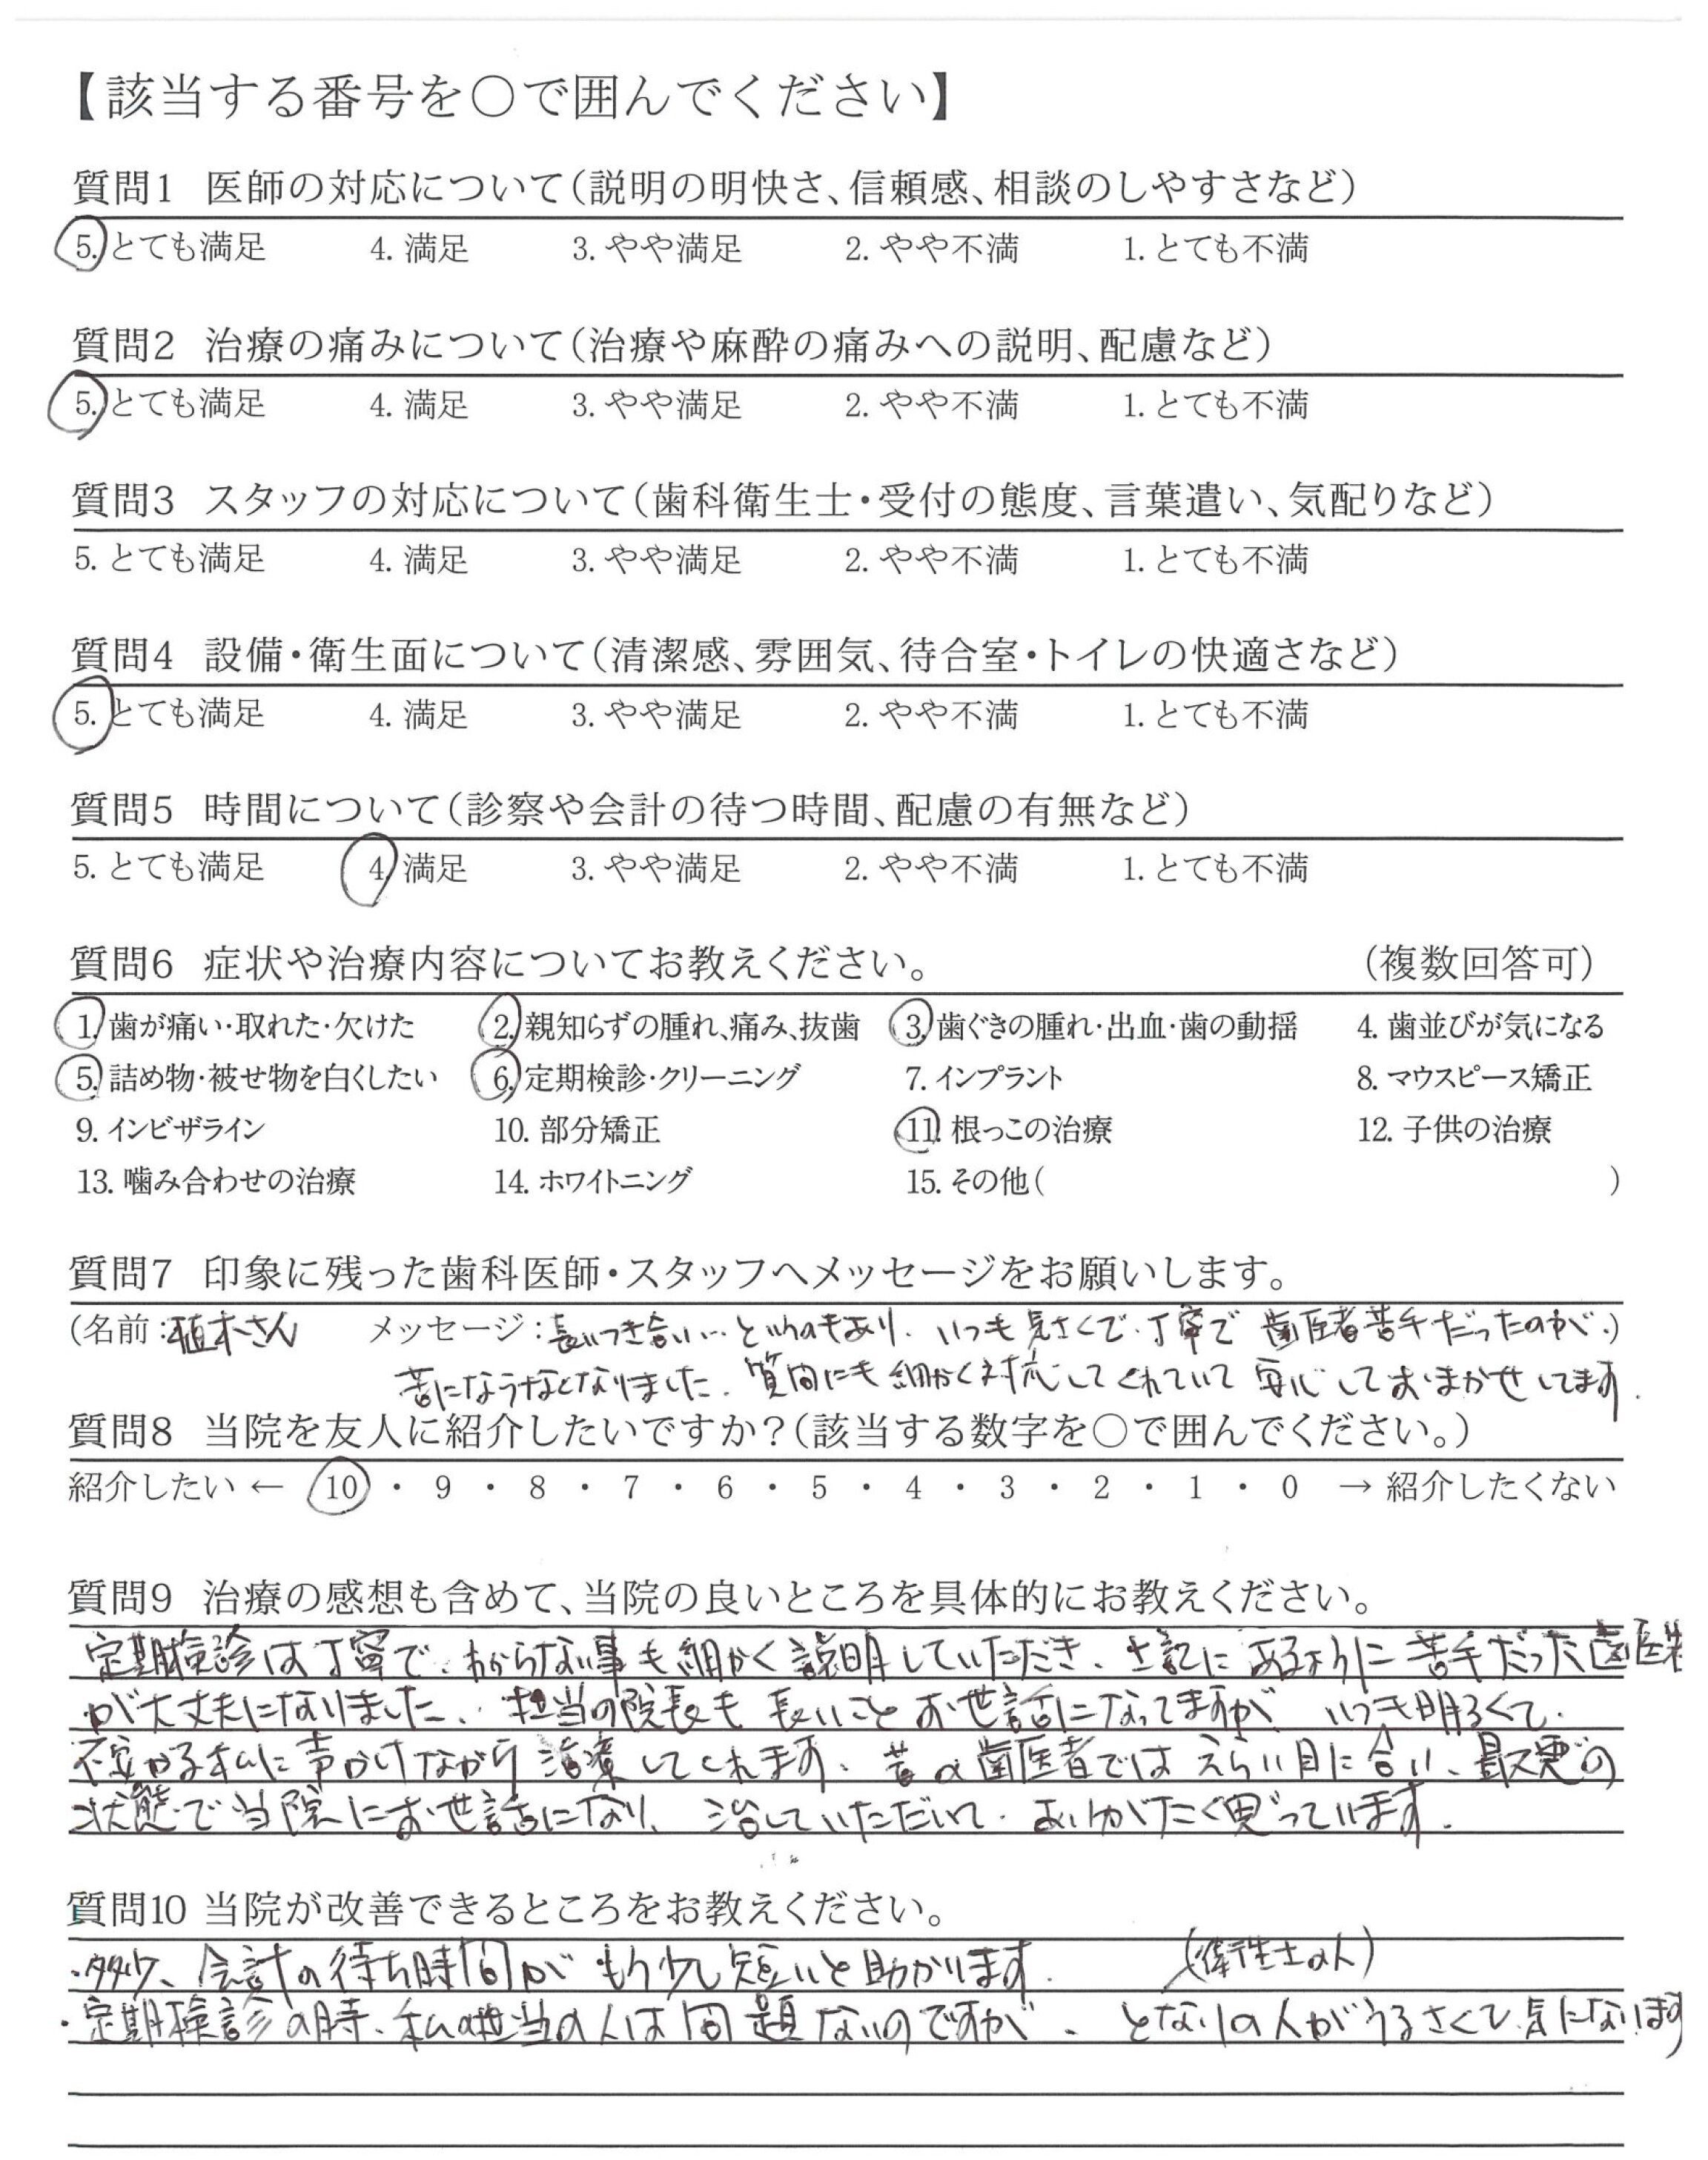 【該当する番号を○で囲んでください】
質問1 医師の対応について(説明の明快さ、信頼感、相談のしやすさなど)
5. とても満足 4. 満足 3. やや満足 2. やや不満 1. とても不満
質問2 治療の痛みについて(治療や麻酔の痛みへの説明、配慮など)
5. とても満足 4. 満足 3. やや満足 2. やや不満 1. とても不満
質問3 スタッフの対応について(歯科衛生士・受付の態度、言葉遣い、気配りなど)
5. とても満足 4. 満足 3. やや満足 2. やや不満 1. とても不満
質問4 設備・衛生面について(清潔感、雰囲気、待合室・トイレの快適さなど)
5. とても満足 4. 満足 3. やや満足 2. やや不満 1. とても不満
質問5 時間について(診察や会計の待つ時間、配慮の有無など)
5. とても満足 4. 満足 3. やや満足 2. やや不満 1. とても不満
質問6 症状や治療内容についてお教えください。 (複数回答可)
1. 歯が痛い・取れた・欠けた 2. 親知らずの腫れ、痛み、抜歯 3. 歯ぐきの腫れ・出血・歯の動揺 4. 歯並びが気になる
5. 詰め物・被せ物を白くしたい 6. 定期検診・クリーニング 7. インプラント 8. マウスピース矯正
9. インビザライン 10. 部分矯正 11. 根っこの治療 12. 子供の治療
13. 噛み合わせの治療 14. ホワイトニング 15. その他( )
質問7 印象に残った歯科医師・スタッフへメッセージをお願いします。
(名前:植木さん メッセージ:長いつき合い…というのもあり、いつも気さくで、丁寧で 歯医者苦手だったのが、)
苦にならなくなりました。質問にも細かく対応してくれていて 安心しておまかせしてます。
質問8 当院を友人に紹介したいですか?(該当する数字を○で囲んでください。)
紹介したい ← 10 ・ 9 ・ 8 ・ 7 ・ 6 ・ 5 ・ 4 ・ 3 ・ 2 ・ 1 ・ 0 → 紹介したくない
質問9 治療の感想も含めて、当院の良いところを具体的にお教えください。
定期検診は丁寧で、わからない事も細かく説明していただき、上記にあるように 苦手だった歯医者
が大丈夫になりました。担当の院長も 長いこと お世話になってますが、いつも明るくて、
不安がる私に声かけながら 治療してくれます。昔の歯医者では えらい目に合い、最悪の
状態で当院にお世話になり、治していただいて、ありがたく思っています。
質問10 当院が改善できるところをお教えください。
・多少、会計の待ち時間が もう少し短いと助かります。 (衛生士の人)
・定期検診の時、私の担当の人は問題ないのですが、となりの人がうるさくて、気になります